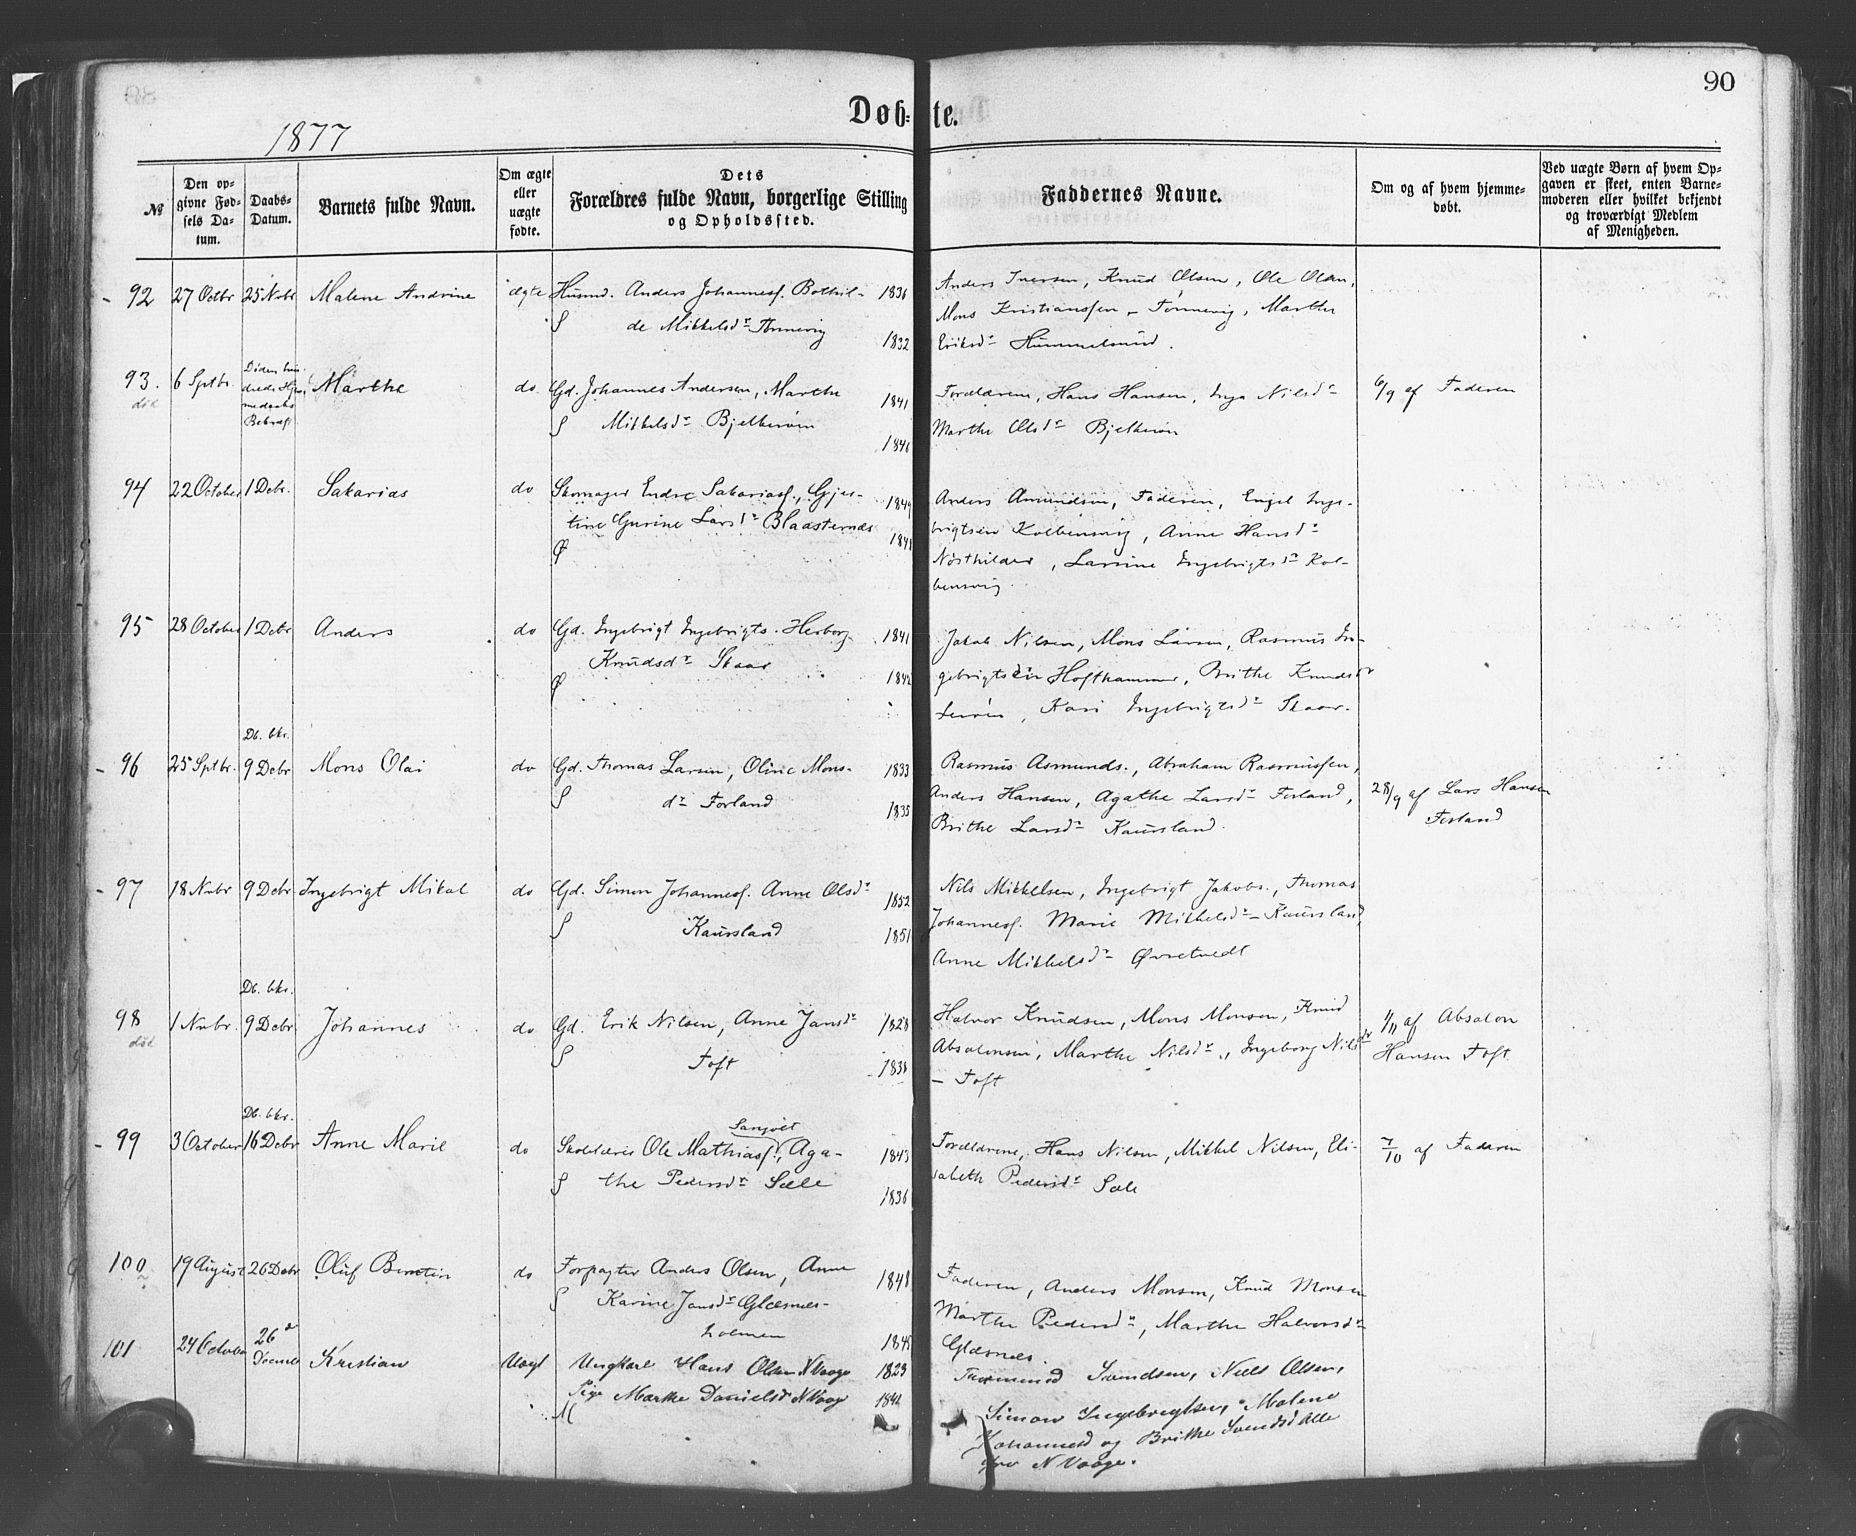 90
Døb-te.
1877
№
Den op-
givne Fød-
sels Da-
tum.
Daabs-
Datum.
Barnets fulde Navn.
Om ægte
eller
uægte
fødte.
Dets
Forældres fulde Navn, borgerlige Stilling
og Opholdssted.
Faddernes Navne.
Om og af hvem hjemme-
døbt.
Ved uægte Børn af hvem Op-
gaven er skeet, enten Barne-
moderen eller hvilket bekjendt
og troværdigt Medlem
af Menigheden.
92 27 Octbr 25 Nvbr Malene Andrine ægte Husmd. Anders Johannesf. Bothil- 1836
S de Mikkelsdr Tønnevig 1832
Anders Iversen, Knud Olsen, Ole Olsen,
Mons Kristianssen - Tønnevig, Marthe
Eriksdr Hummelsund.
93. 6 Sptbr. Marthe do Gd. Johannes Andersen, Marthe 1841
død
S Mikkelsdr Bjelkerøen 1846
Forældrene, Hans Hansen, Inga Nilsdr
Marthe Olsdr Bjelkerøn
6/9 af Faderen
94 22 October 1 Debr. Sakarias do Skomager Endre Sakariasf., Gjer-
tine Gurine Larsdr Blaasternæs
Ø
Anders Amundsen, Faderen, Engel Inge-
brigtsen Kolbensvig, Anne Hansdr
Nøsthilder, Larsine Ingebrigtsdr Kol-
bensvig.
95 28 October 1 Debr Anders do Gd. Ingebrigt Ingebrigts. Herborg 1841
Knudsdr Skaar 1842
Ø
Jakob Nilsen, Mons Larsen, Rasmus In-
gebrigtsen Hofthammer, Brithe Knudsdr
Lerøen, Kari Ingebrigtsdr Skaar.
Db. bkr.
96 25 Sptbr. 9 Debr Mons Olai do Gd. Thomas Larsen, Oline Mons- 1833
S dr Forland 1835
Rasmus Asmunds., Abraham Rasmussen,
Anders Hansen, Agathe Larsdr Forland,
Brithe Larsdr Kaursland.
28/9 af Lars Hansen
Forland
97 18 Nvbr 9 Debr Ingebrigt Mikal do Gd. Simon Johannesf. Anne Olsdr 1852
S Kaursland 1851
Nils Mikkelsen, Ingebrigt Jakobs., Thomas
Johannesf. Marie Mikkelsdr - Kaursland,
Anne Mikkelsdr Øvretvedt
Db. bkr.
98 1 Nvbr. 9 Debr Johannes do Gd. Erik Nilsen, Anne Jansdr 1828
død
S Toft 1838
Halvor Knudsen, Mons Monsen, Knud
Absalonsen, Marthe Nilsdr., Ingeborg Nilsdr
- Toft
1/11 af Absalon
Hansen Toft
Db. bkr.
99 3 October 16 Debr Anne Marie do Skolelærer Ole Mathiasf., Aga- 1843
S the Pedersdr Sæle 1836
Forældrene, Hans Nilsen, Mikkel Nilsen, Eli-
sabeth Pedersdr Sæle
7/10 af Faderen
100 19 August 26 Debr Oluf Berntin do Forpagter Anders Olsen, Anne 1848
S Karine Jansdr Glæsnes-
holmen 1845
Faderen, Anders Monsen, Knud Monsen
Marthe Pedersdr, Marthe Halvorsdr
Glæsnes.
101 24 October 26 Kristian Uægt Ungkarl Hans Olsen N Vaage 1823
Pige Marthe Danielsd N Vaage
M
Svendsen, Niels Olsen,
Simon Ingebregtsen, Malene
Johannesd og Brithe Svendsd Alle
fra N Vaage.